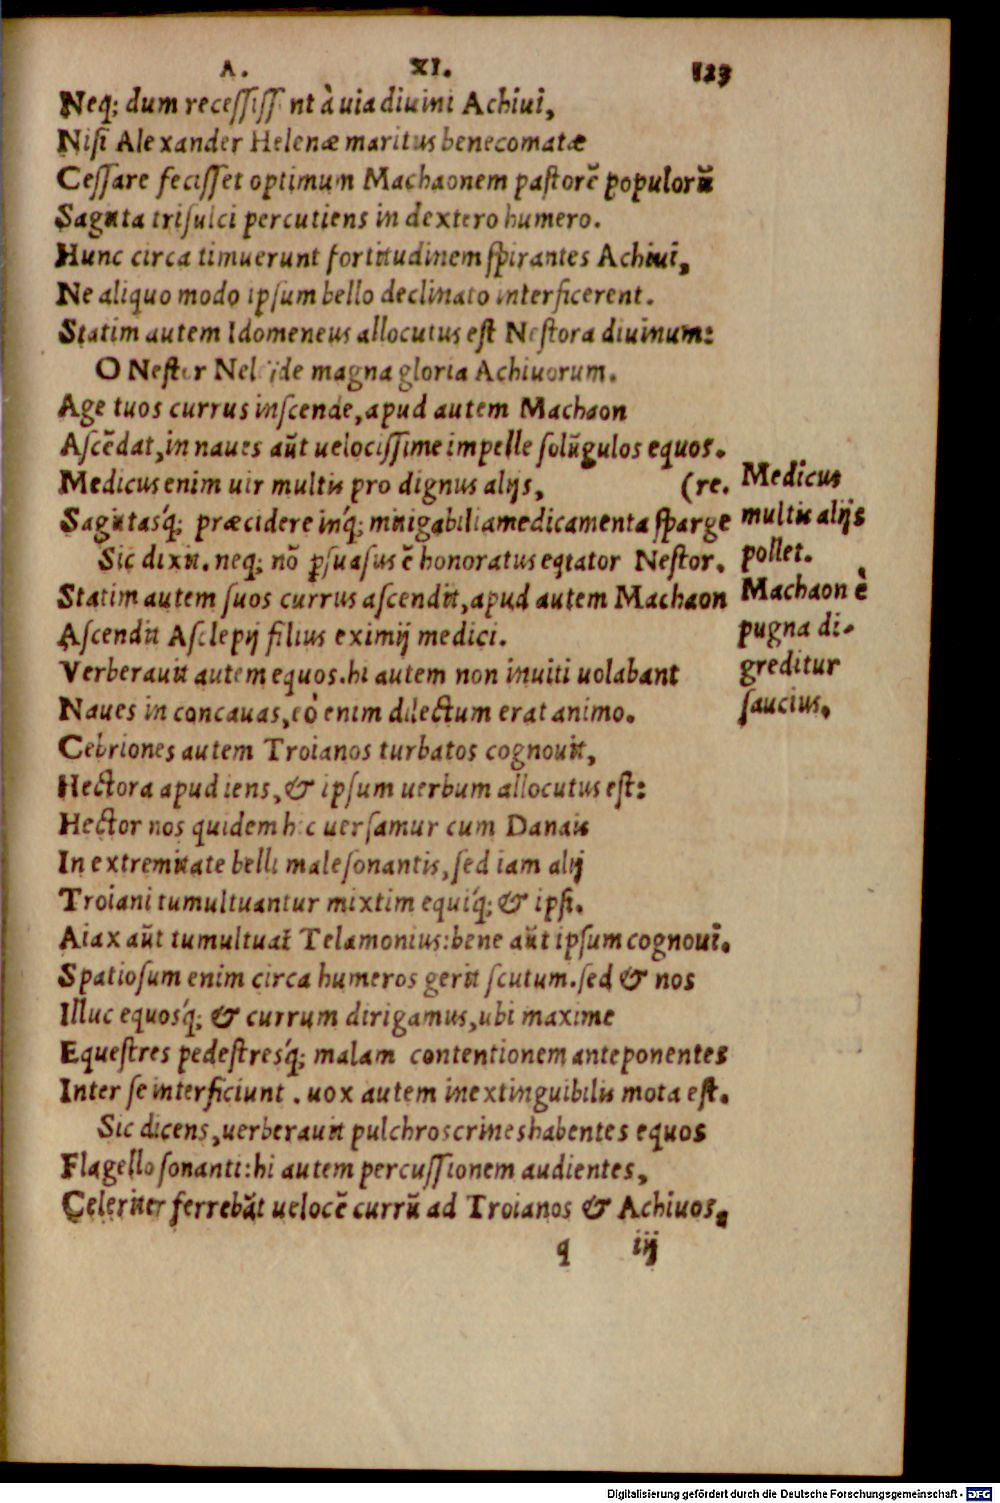 Λ. XI. 123
Neq; dum recessissent à uia diuini Achiui,
Nisi Alexander Helenæ maritus benecomatæ
Cessare fecisset optimum Machaonem pastorē populorū
Sagitta trisulci percutiens in dextero humero.
Hunc circa timuerunt fortitudinem spirantes Achiui,
Ne aliquo modo ipsum bello declinato interficerent.
Statim autem Idomeneus allocutus est Nestora diuinum:
O Nestor Neleide magna gloria Achiuorum.
Age tuos currus inscende, apud autem Machaon
Ascēdat, in naues aūt uelocissime impelle solūgulos equos.
Medicus enim uir multis pro dignus alijs, (re.
Sagittasq́; præcidere inq́; mitigabilia medicamenta sparge
Sic dixit. neq; nō ꝑsuasus ē honoratus eqtator Nestor.
Statim autem suos currus ascendit, apud autem Machaon
Ascendit Asclepij filius eximij medici.
Verberauit autem equos. hi autem non inuiti uolabant
Naues in concauas, eò enim dilectum erat animo.
Cebriones autem Troianos turbatos cognouit,
Hectora apud iens, & ipsum uerbum allocutus est:
Hector nos quidem hic uersamur cum Danais
In extremitate belli malesonantis, sed iam alij
Troiani tumultuantur mixtim equiq́; & ipsi.
Aiax aūt tumultuat Telamonius: bene aūt ipsum cognoui.
Spatiosum enim circa humeros gerit scutum. sed & nos
Illuc equosq́; & currum dirigamus, ubi maxime
Equestres pedestresq́; malam contentionem anteponentes
Inter se interficiunt. uox autem inextinguibilis mota est.
Sic dicens, uerberauit pulchros crines habentes equos
Flagello sonanti: hi autem percussionem audientes,
Celeriter ferrebāt uelocē currū ad Troianos & Achiuos,
q iij
Medicus
multis alijs
pollet.
Machaon è
pugna di-
greditur
saucius.
Digitalisierung gefördert durch die Deutsche Forschungsgemeinschaft - DFG